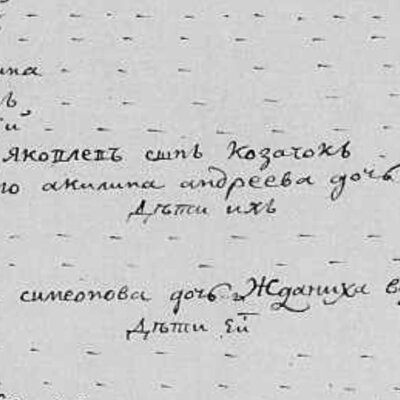 ина
ъ
Яковлевъ сынъ Козачокъ
го акилина андреева дочь
Дѣти ихъ
симеонова дочь Жданиха в
Дѣти ей